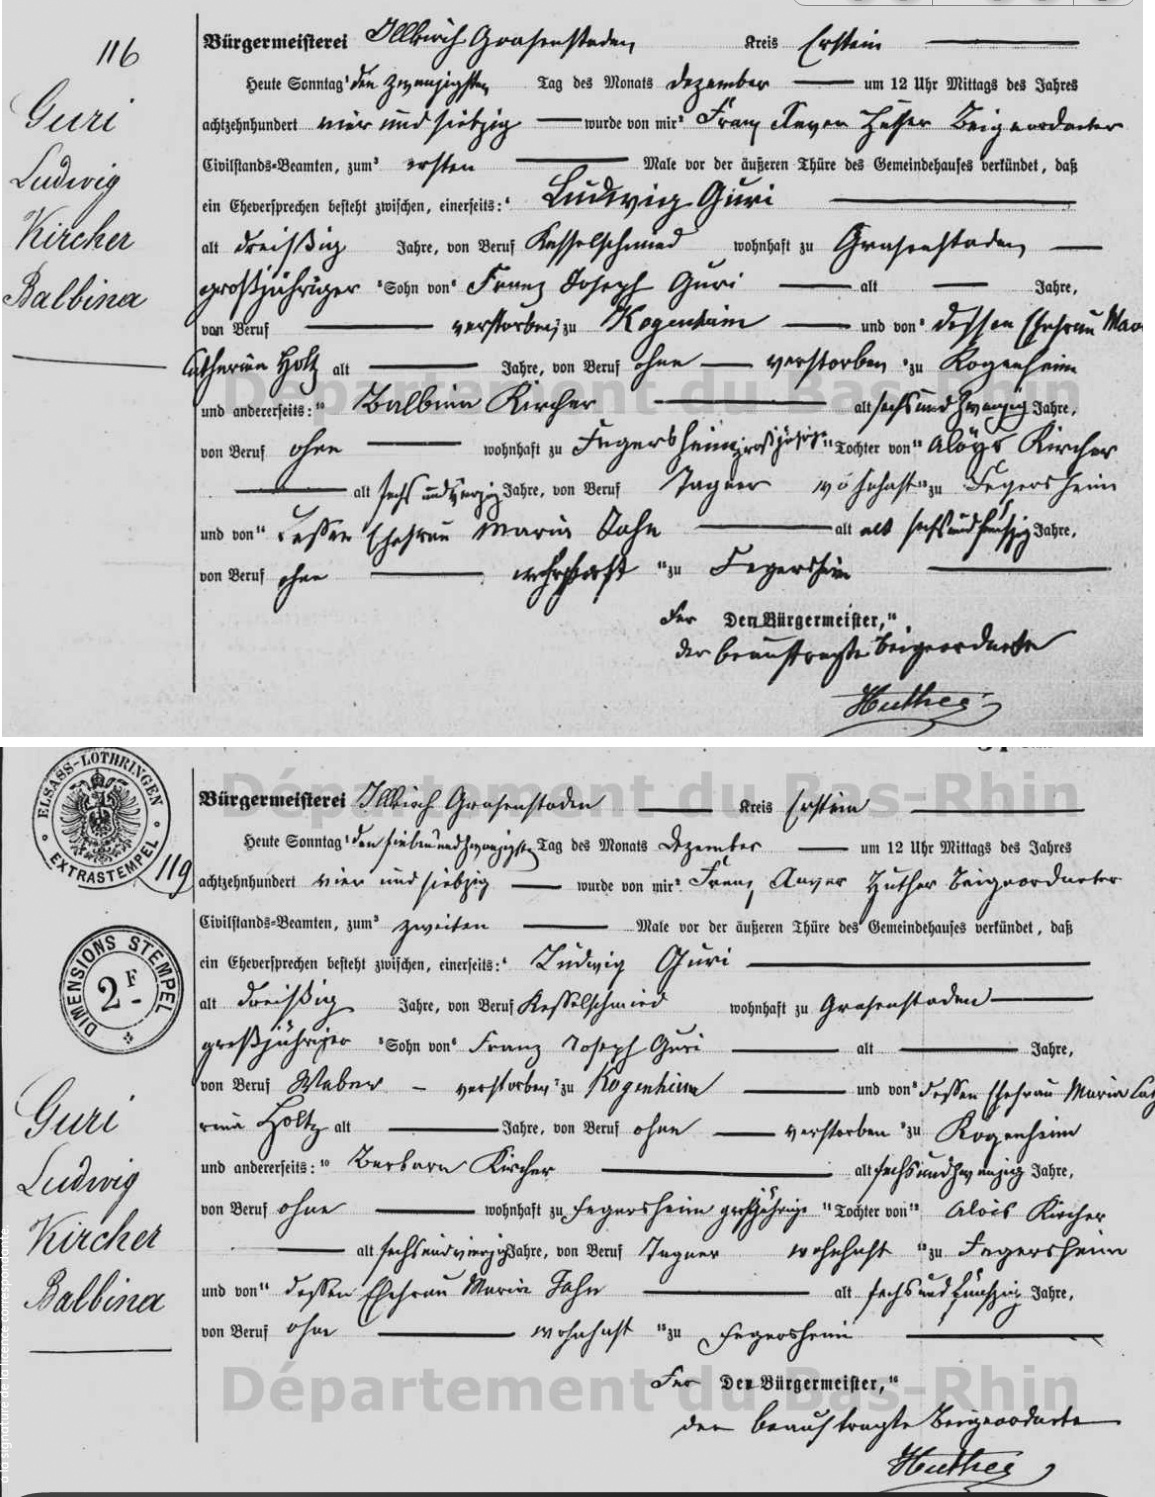 116
Guri
Ludwig
Kircher
Balbina
Bürgermeisterei Illkirch Grafenstaden Kreis Erstein
Heute Sonntag¹ den zwanzigsten Tag des Monats Dezember um 12 Uhr Mittags des Jahres
achtzehnhundert vier und siebzig wurde von mir² Franz Xaver Huther Beigeordneter
Civilstands-Beamten, zum³ ersten Male vor der äußeren Thüre des Gemeindehauses verkündet, daß
ein Eheversprechen besteht zwischen, einerseits:⁴ Ludwig Guri
alt dreißig Jahre, von Beruf Kesselschmied wohnhaft zu Grafenstaden
großjähriger ⁵Sohn von⁶ Franz Joseph Guri alt Jahre,
von Beruf verstorben ⁷zu Kogenheim und von⁸ dessen Ehefrau Maria
Catherina Holtz alt Jahre, von Beruf ohne verstorben ⁹zu Kogenheim
und andererseits:¹⁰ Balbina Kircher alt sechs und zwanzig Jahre,
von Beruf ohne wohnhaft zu Fegersheim großjährige ¹¹Tochter von¹² Aloys Kircher
alt sechs und vierzig Jahre, von Beruf Tagner wohnhaft ¹³zu Fegersheim
und von¹⁴ dessen Ehefrau Maria Jahn alt alt sechs und fünfzig Jahre,
von Beruf ohne wohnhaft ¹⁵zu Fegersheim
Für Den Bürgermeister,¹⁶
der beauftragte Beigeordnete
Huther
Département du Bas-Rhin
ELSASS-LOTHRINGEN
EXTRASTEMPEL
119
DIMENSIONS STEMPEL
2 F
Guri
Ludwig
Kircher
Balbina
Département du Bas-Rhin
Bürgermeisterei Illkirch Grafenstaden Kreis Erstein
Heute Sonntag¹ den siebenundzwanzigsten Tag des Monats Dezember um 12 Uhr Mittags des Jahres
achtzehnhundert vier und siebzig wurde von mir² Franz Xaver Huther Beigeordneter
Civilstands-Beamten, zum³ zweiten Male vor der äußeren Thüre des Gemeindehauses verkündet, daß
ein Eheversprechen besteht zwischen, einerseits:⁴ Ludwig Guri
alt dreißig Jahre, von Beruf Kesselschmied wohnhaft zu Grafenstaden
großjähriger ⁵Sohn von⁶ Franz Joseph Guri alt Jahre,
von Beruf Weber verstorben ⁷zu Kogenheim und von⁸ dessen Ehefrau Maria Cathe
rina Holtz alt Jahre, von Beruf ohne verstorben ⁹zu Kogenheim
und andererseits:¹⁰ Barbara Kircher alt sechs und zwanzig Jahre,
von Beruf ohne wohnhaft zu Fegersheim großjährige ¹¹Tochter von¹² Alois Kircher
alt sechs und vierzig Jahre, von Beruf Tagner wohnhaft ¹³zu Fegersheim
und von¹⁴ dessen Ehefrau Maria Jahn alt sechs und fünfzig Jahre,
von Beruf ohne wohnhaft ¹⁵zu Fegersheim
Für Den Bürgermeister,¹⁶
der beauftragte Beigeordnete
Huther
Département du Bas-Rhin
a la signature de la licence correspondante.